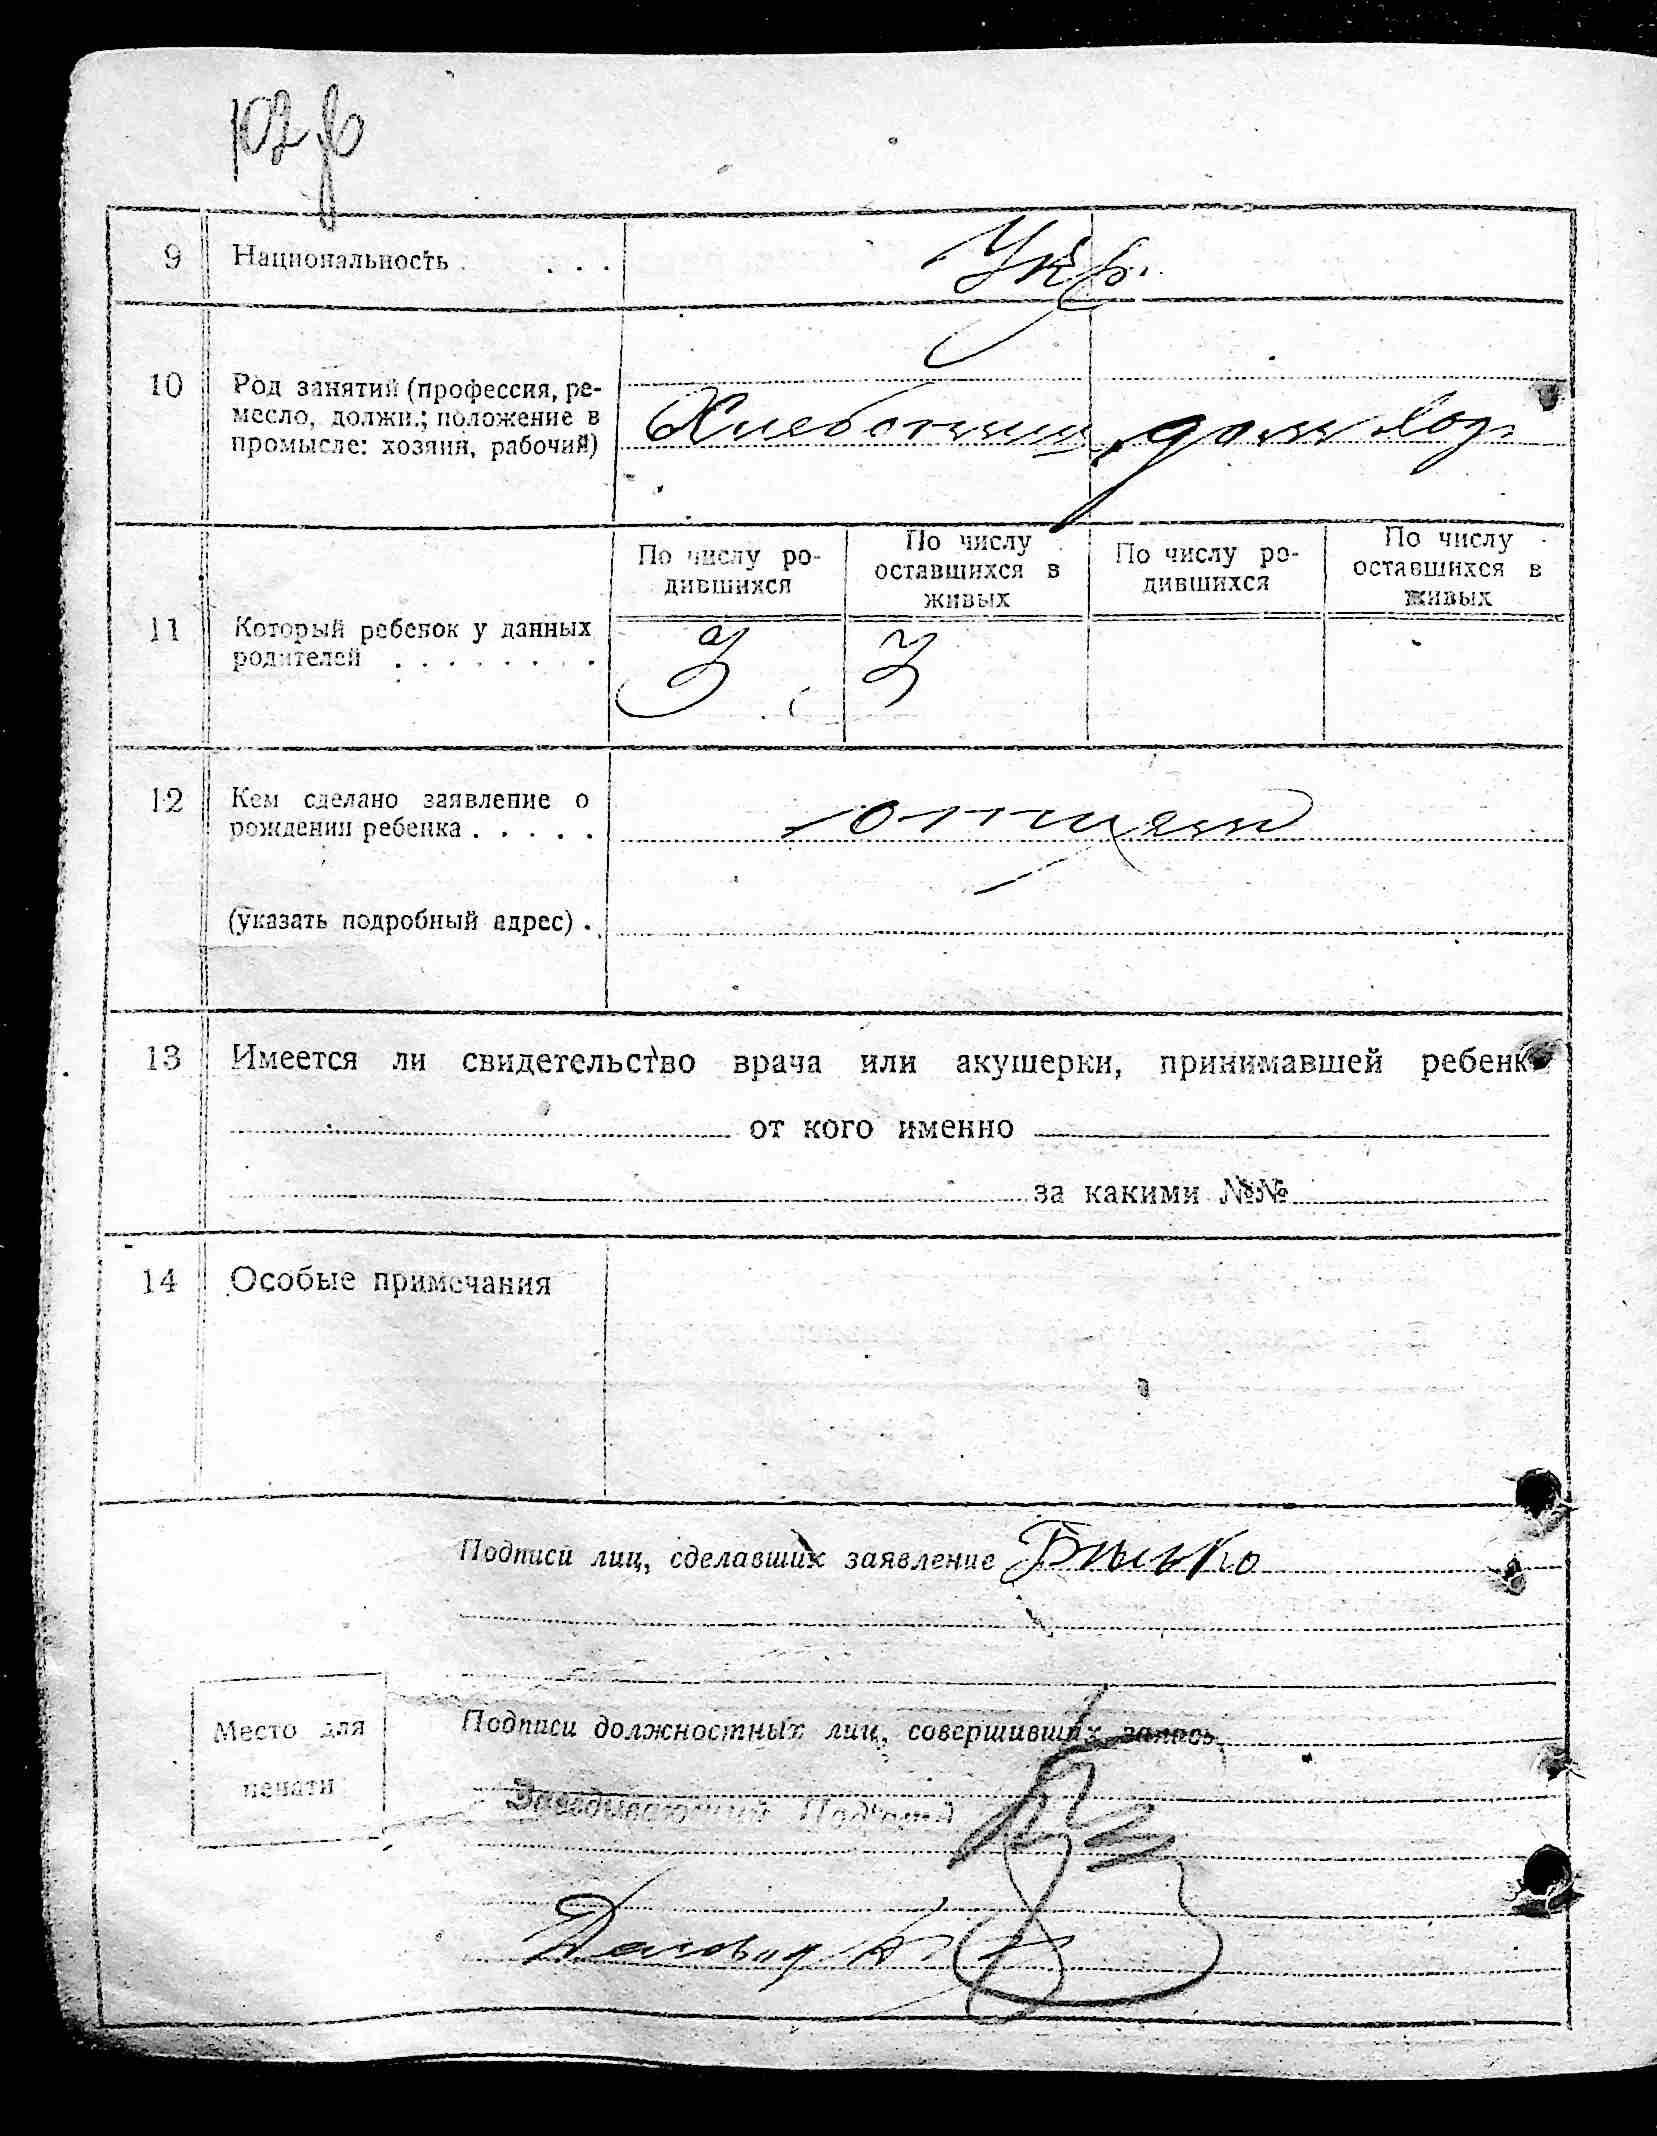 9 Национальность . . . . Укр.
10 Род занятий (профессия, ре-
месло, должн.; положение в
промысле: хозяин, рабочий)
Хлебопашец дом хоз.
По числу ро-
дившихся
По числу
оставшихся в
живых
По числу ро-
дившихся
По числу
оставшихся в
живых
11 Который ребенок у данных
родителей . . . . . . . .
3 3
12 Кем сделано заявление о
рождении ребенка . . . . .
отцем
(указать подробный адрес) .
13 Имеется ли свидетельство врача или акушерки, принимавшей ребенк
от кого именно
за какими №№
14 Особые примечания
Подписи лиц, сделавших заявление Билько
Место для
печати
Подписи должностных лиц, совершивших запись
Заведывающий